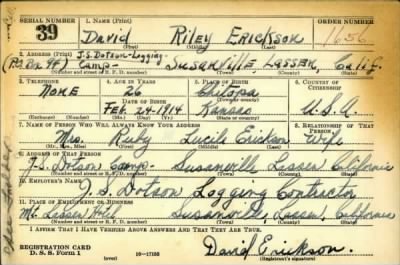 SERIAL NUMBER 1. NAME (Print) ORDER NUMBER
39 David Riley Erickson 1656
(First) (Middle) (Last)
2. ADDRESS (Print) J.S. Dotson-Logging-
(P.O. Box 9F) Camp- Susanville, Lassen, Calif.
(Number and street or R. F. D. number) (Town) (County) (State)
3. TELEPHONE 4. AGE IN YEARS 5. PLACE OF BIRTH 6. COUNTRY OF CITIZENSHIP
None 26 Chetopa
DATE OF BIRTH (Town or county)
Feb. 24-1914 Kansas U.S.A.
(Exchange) (Number) (Mo.) (Day) (Yr.) (State or country)
7. NAME OF PERSON WHO WILL ALWAYS KNOW YOUR ADDRESS 8. RELATIONSHIP OF THAT PERSON
Mrs. Ruby Lucile Erickson Wife
(Mr., Mrs., Miss) (First) (Middle) (Last)
9. ADDRESS OF THAT PERSON
J.S. Dotson Camp- Susanville Lassen California
(Number and street or R. F. D. number) (Town) (County) (State)
10. EMPLOYER'S NAME
J.S. Dotson Logging Contractor
11. PLACE OF EMPLOYMENT OR BUSINESS
Susanville, Lassen, California
(Number and street or R. F. D. number) (Town) (County) (State)
I AFFIRM THAT I HAVE VERIFIED ABOVE ANSWERS AND THAT THEY ARE TRUE.
REGISTRATION CARD
D. S. S. Form 1 (over) 16-17105 David Erickson.
(Registrant's signature)